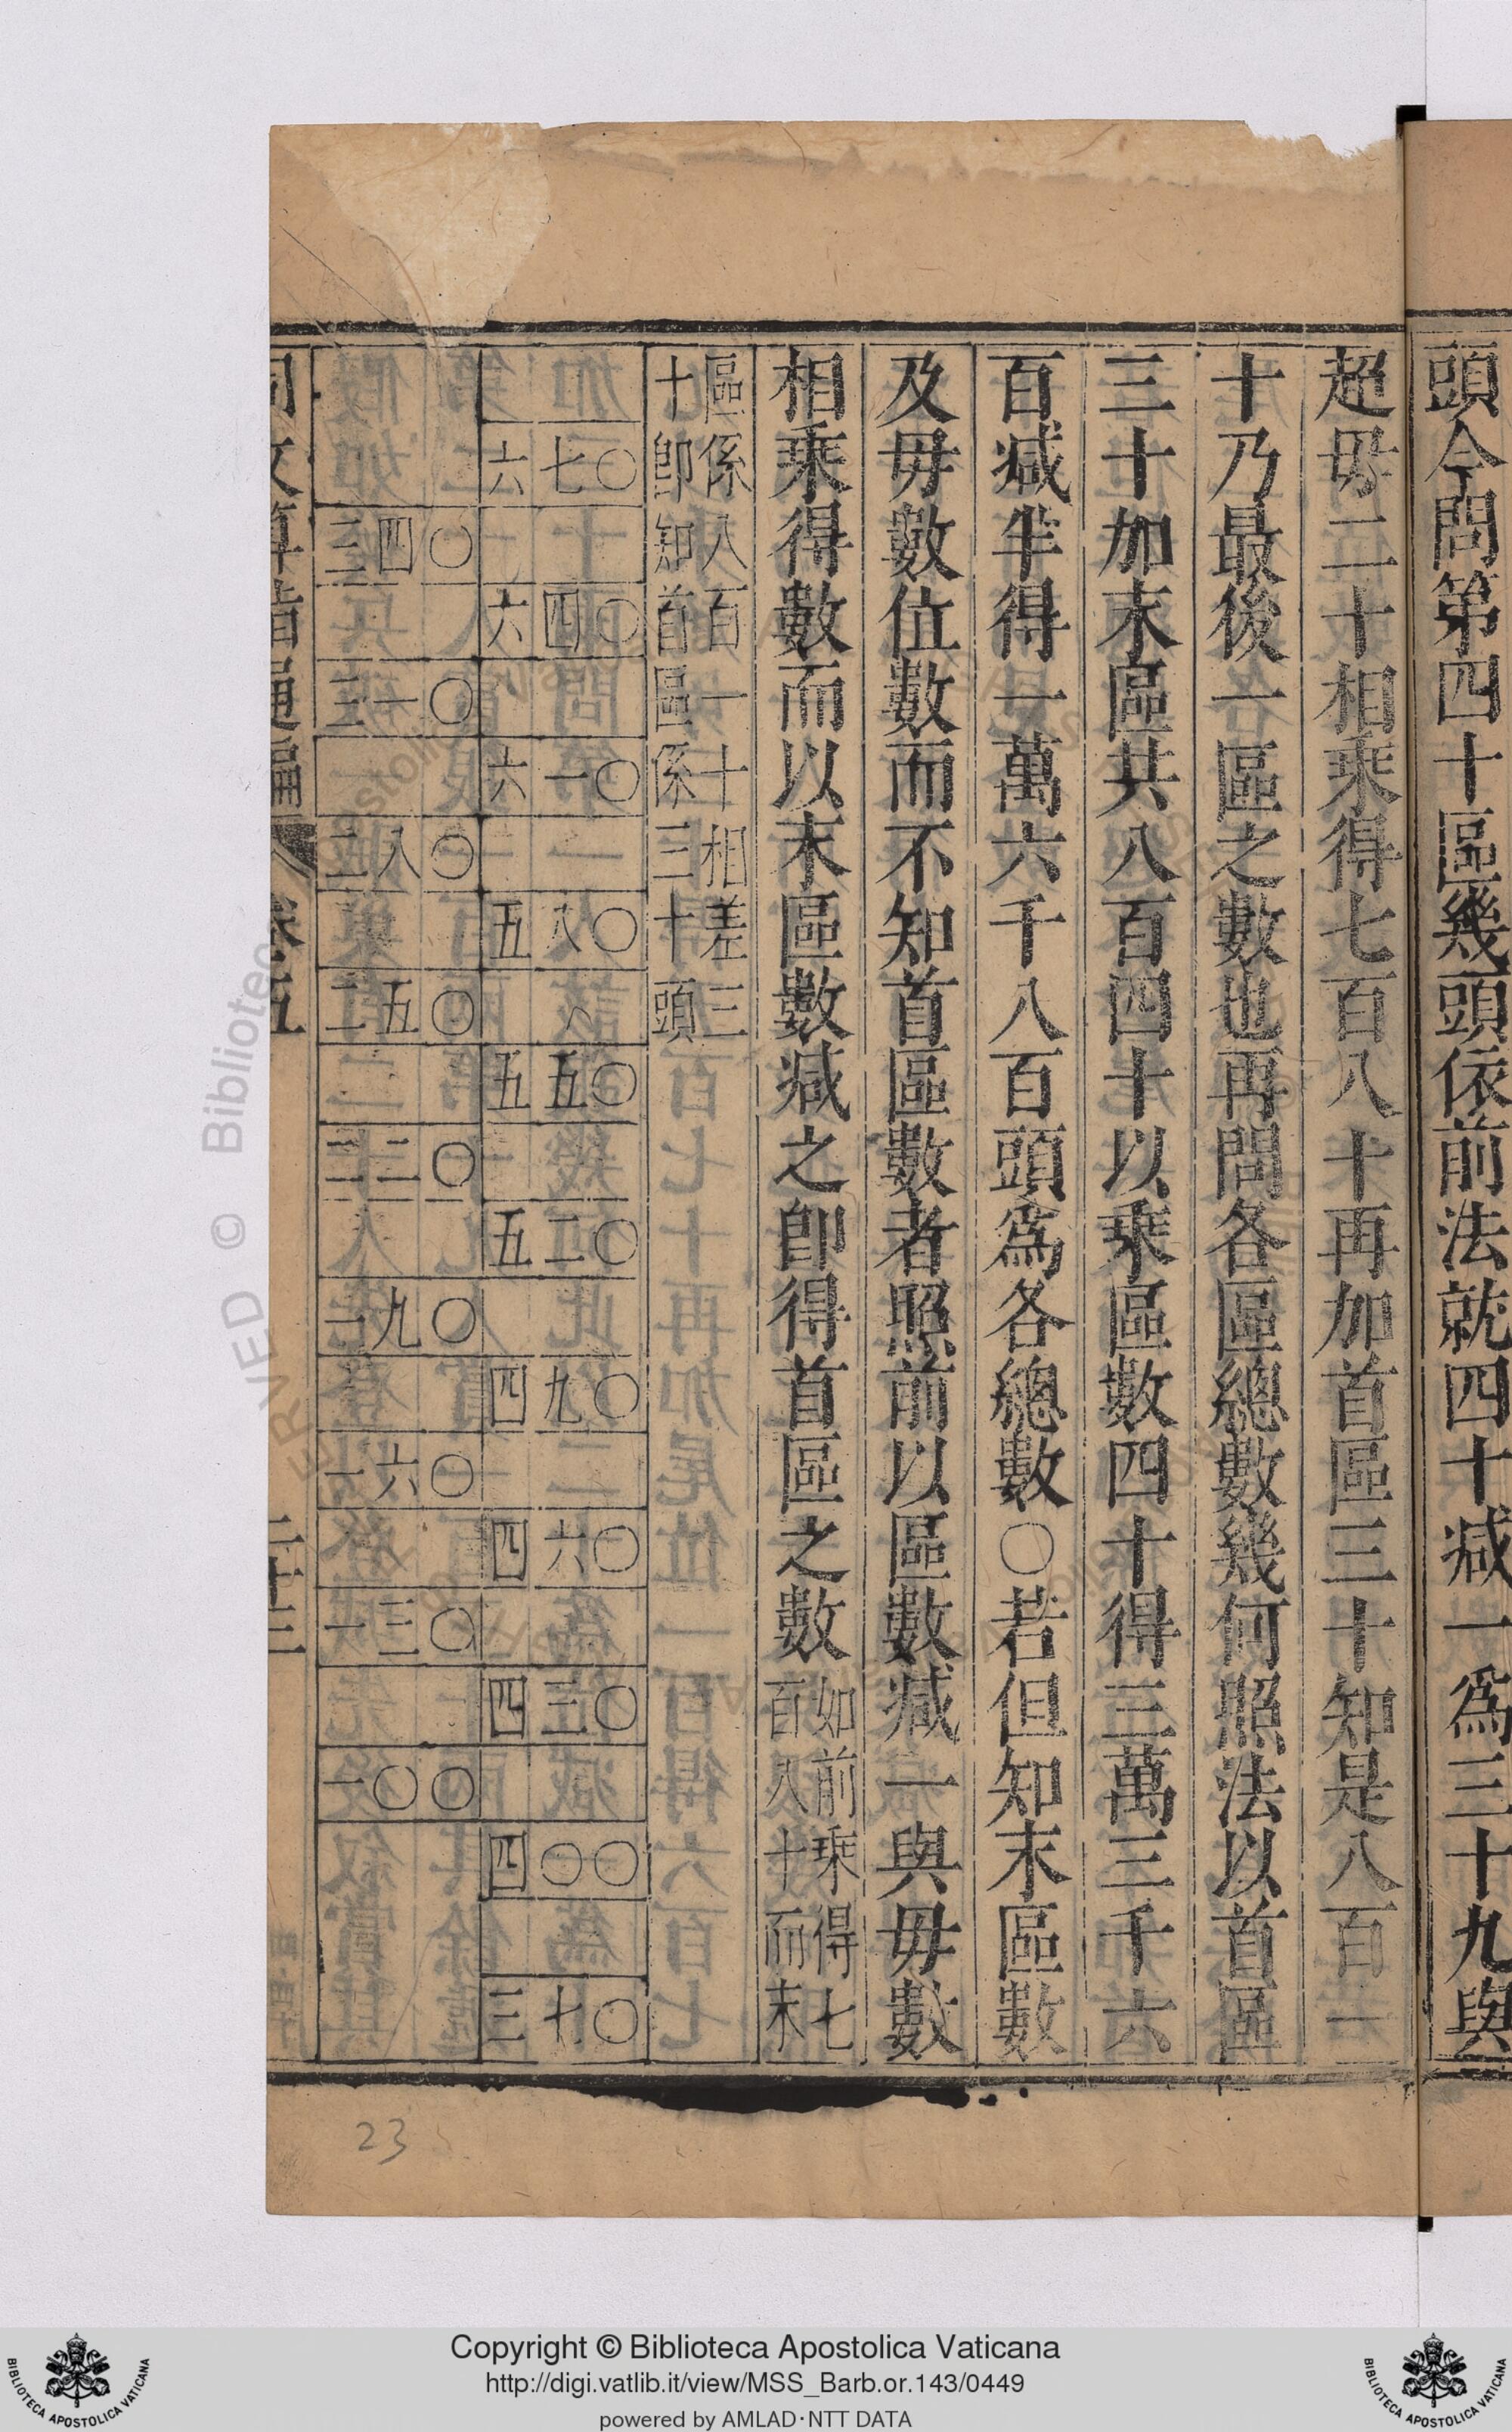 頭今問第四十區幾頭依前法就四十减一爲三十九與
超毋二十相乘得七百八十再加首區三十知是八百一
十乃最後一區之數也再問各區總數幾何照法以首區
三十加末區共八百四十以乘區數四十得三萬三千六
百减半得一萬六千八百頭爲各總數○若但知末區數
及毋數位數而不知首區數者照前以區數减一與毋數
相乘得數而以末區數减之卽得首區之數
如前乘得七
百八十而末
區係八百一十相差三
十卽知首區係三十頭
六七○
六四○
六一○
五八○
五五○
五二○
四九○
四六○
四三○
四○○
三七○
三四○
三一○
二八○
二五○
二二○
一九○
一六○
一三○
一○○
同文算指通編 卷五 二十三
23
Copyright © Biblioteca Apostolica Vaticana
http://digi.vatlib.it/view/MSS_Barb.or.143/0449
powered by AMLAD·NTT DATA
BIBLIOTECA APOSTOLICA VATICANA
BIBLIOTECA APOSTOLICA VATICANA